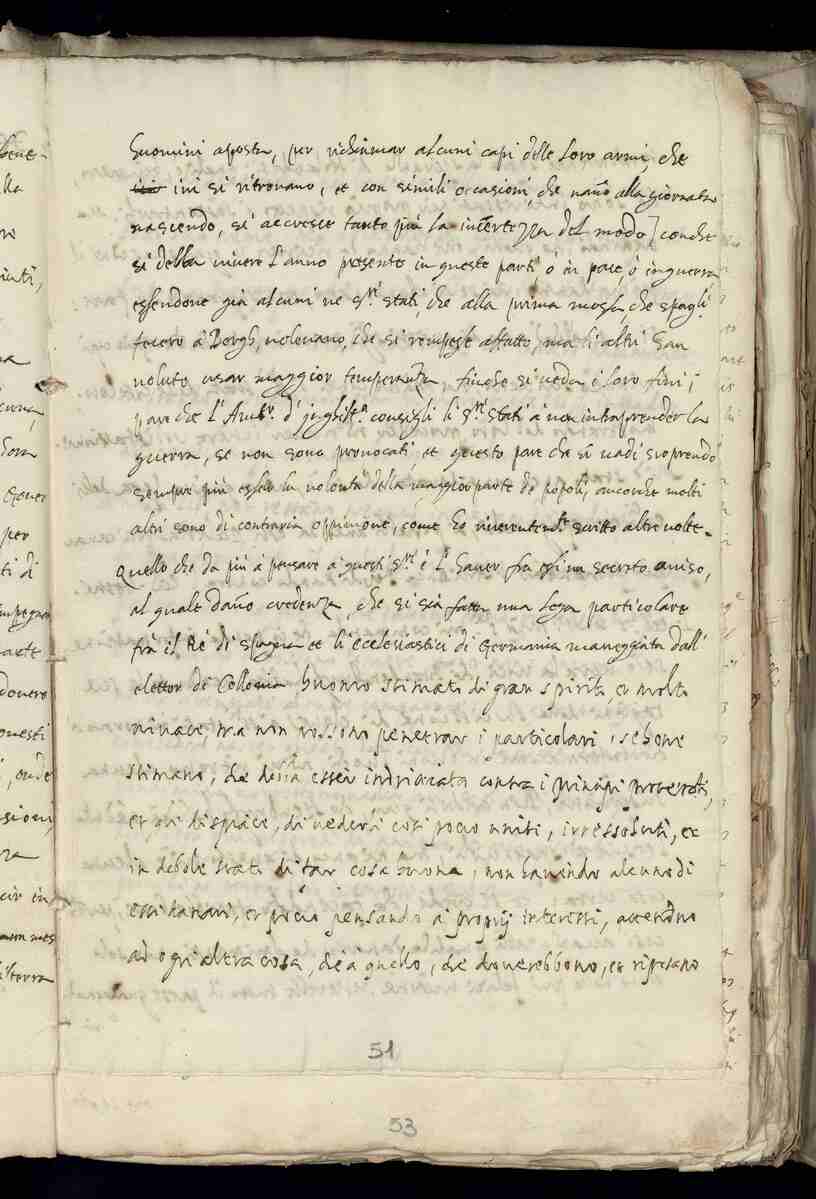 huomini aposta, per richiamar alcuni capi delle loro armi, che
ivi si ritrovano, et con simili occasioni, che vano alla giornata
nascendo, si accresce tanto più la incertezza del modo, con che
si debba vivere l'anno presente in queste parti ò in pace, ò in guerra
essendone già alcuni ne Sri stati, che alla prima mossa, che spagli.
fecero à Bergh, volevano, che si rompesse affatto, ma li altri han
voluto usar maggior temperanza, finche si veda i loro fini;
pare che l'Ambr. d'inghilt.a consigli li Sri stati à non intraprender la
guerra, se non sono provocati et questo pare che si vadi scoprendo
sempre più esser la volontà della maggior parte de popoli, ancorche molti
altri sono di contraria oppinione, come ho riverentemte. scritto altre volte.
Quello che da più à pensare à questi Sri è l'haver frà essi un secreto aviso,
al quale dano credenza, che si sia fatta una lega particolare
frà il Rè di Spagna et li ecclesiastici di Germania maneggiata dall'
elettor di Collonia huomo stimato di gran spirito, et molto
vivace, ma non possono penetrar i particolari, se bene
stimano, che debba esser indriciata contra i Principi Protestti,
et gli dispiace, di vederli così poco uniti, irressoluti, et
in debole stato di far cosa buona, non havendo alcuno di
essi danari, et poco pensando à proprij interessi, attendono
ad ogni altra cosa, che à quello, che doverebbono, et riposano
51
53